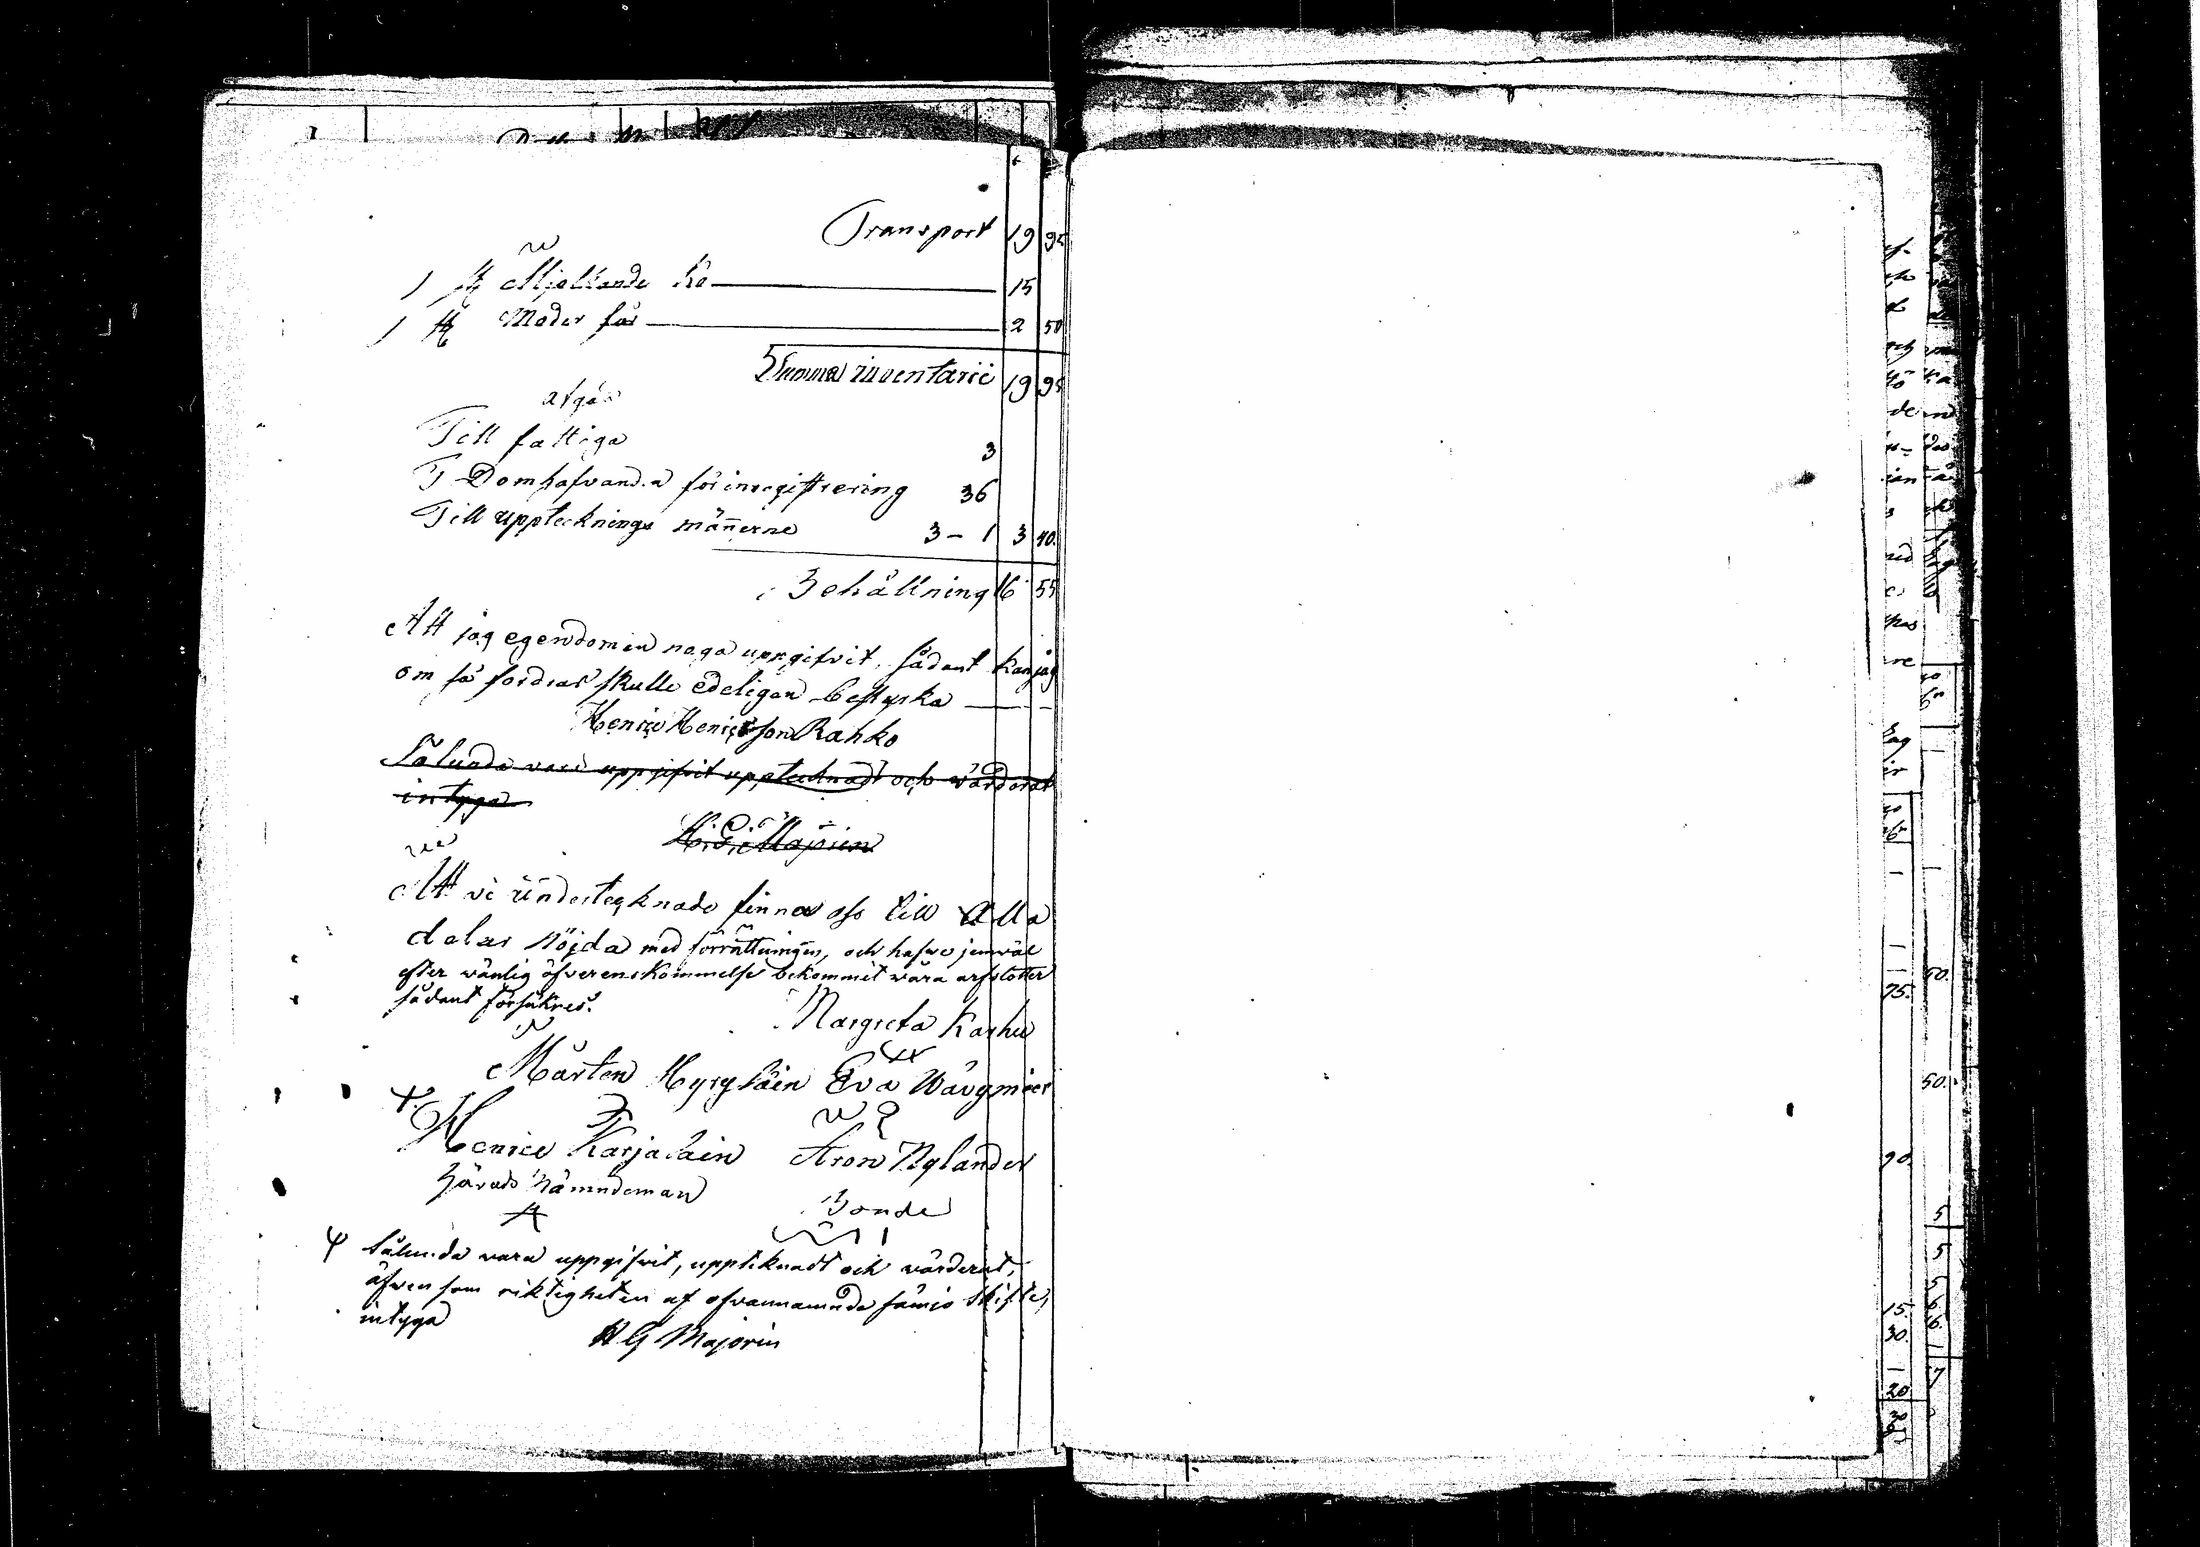 Transport 19 95
1 st Mjölkande Ko 15
1 st Moder får 2 50
Summa inventarii 19 95
afgår
Till fattiga 3
T Domhafvand.a för inregistrering 36
Till upptecknings männerne 3 – 1 3 40.
Behållning 16 55
Att jag egendomen noga uppgifvit, sådant kan jag
om så fordras skulle edeligen bestyrka
Henric Henricsson Rahko
Sålunda vara uppgifvit upptecknadt och värderat
intyga
H: G: Majorin
Att vi undertecknade finna oss till Alla
delar nöjda med förrättningen, och hafve jemväl
efter vänlig öfverenskommelse bekommit våra arfslotter
sådant försäkras.
Margreta Karhu
Mårten Hyryläin Eva Wävgmies
Henric Karjalain Aron Nylander
Härads Nämndeman Bonde
Sålunda vara uppgifvit, uppteknadt och värderat,
äfven som riktigheten af ofvannämnde sämjo skifte,
intyga
H G Majorin